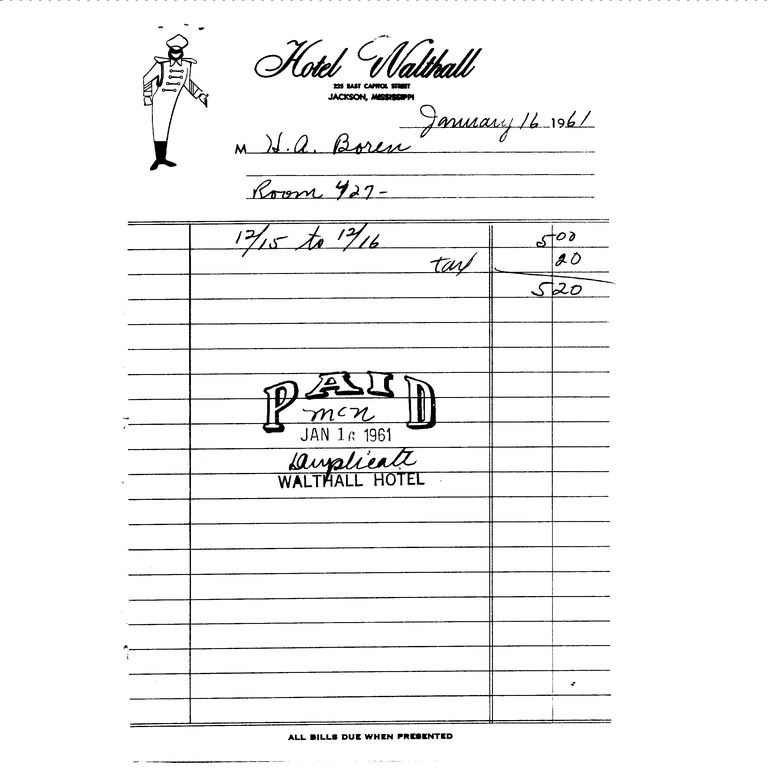 Hotel Walthall
225 EAST CAPITOL STREET
JACKSON, MISSISSIPPI
January 16 1961
M H. A. Boren
Room 427-
12/15 to 12/16 5 00
tax 20
5 20
PAID
mcn
JAN 16 1961
Duplicate
WALTHALL HOTEL
ALL BILLS DUE WHEN PRESENTED